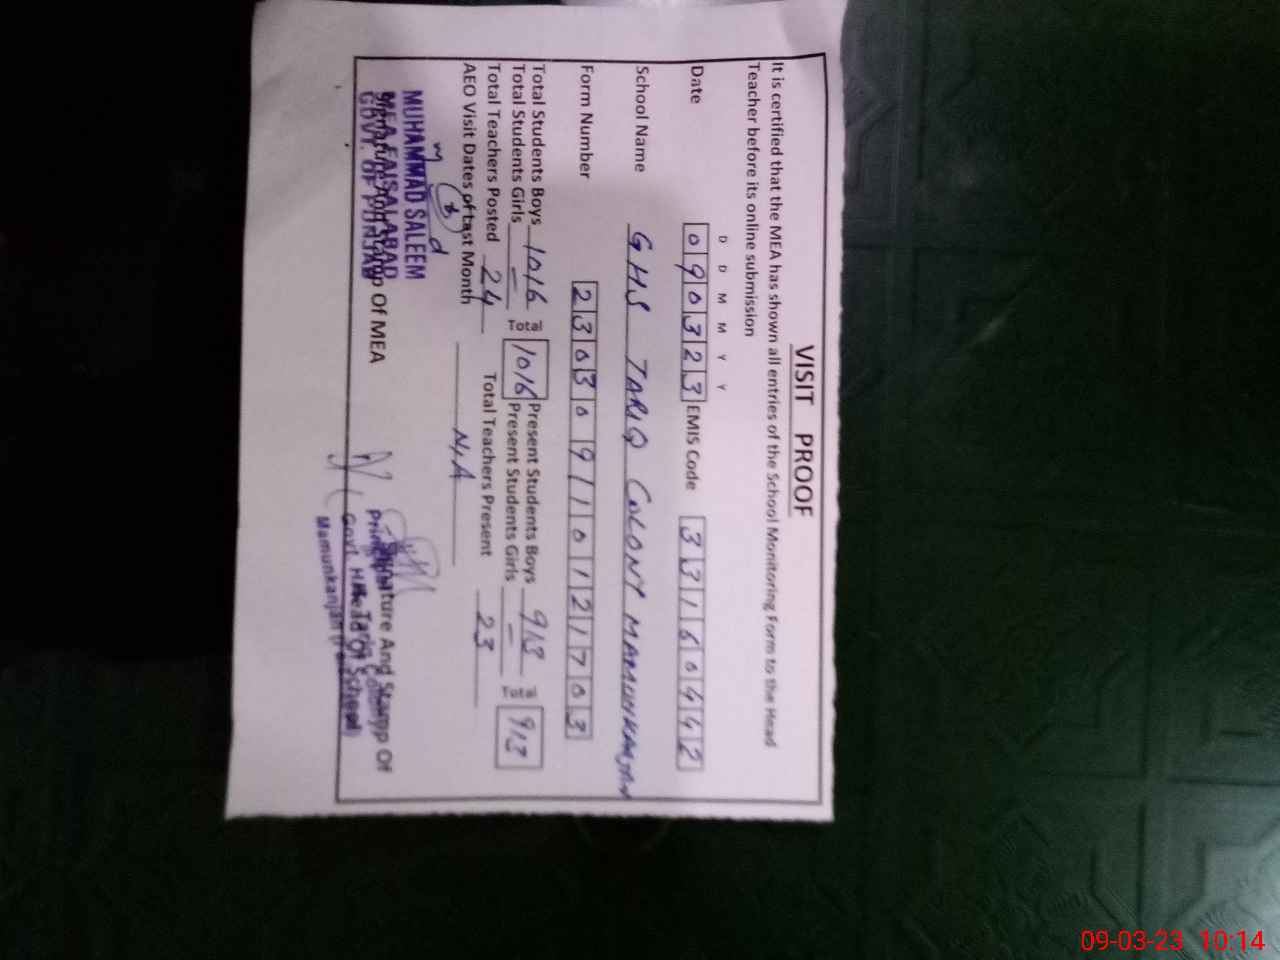 VISIT PROOF
It is certified that the MEA has shown all entries of the School Monitoring Form to the Head
Teacher before its online submission
D D M M Y Y
Date 090323 EMIS Code 33160442
School Name GHS TARIQ COLONY MAMUNKANJAN
Form Number 230309110121703
Total Students Boys 1016 Total 1016 Present Students Boys 913 Total 913
Total Students Girls - Present Students Girls -
Total Teachers Posted 24 Total Teachers Present 23
AEO Visit Dates of Last Month N,A
MUHAMMAD SALEEM
MEA FAISALABAD
GOVT. OF PUNJAB
Signature And Stamp Of MEA
Signature And Stamp Of
Head Of School
Principal
Govt. H. Tariq
Mamunkanjan
09-03-23 10:14